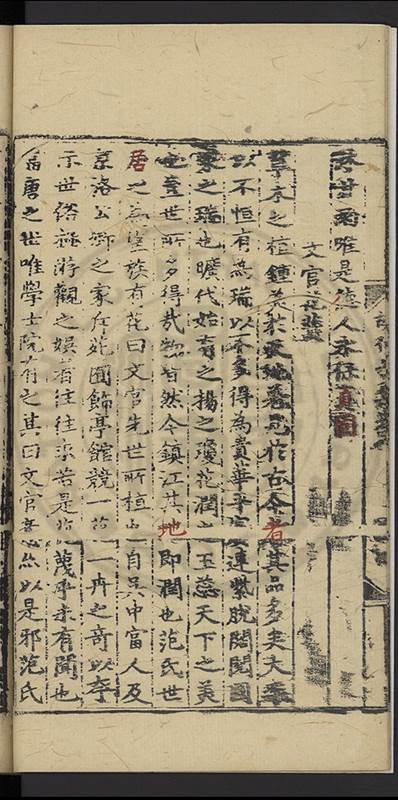 世爾唯是德人永
文官花
草木之植鍾美於天地著見於古今者其品多矣夫
以不恒有為瑞以不多得為貴華平賓連紫脫閱國
家之瑞也曠代始有之揚之瓊花潤之玉蕊天下之美
也世所多得哉物皆然今鎮江其地即潤也范氏世
居之為望族有花曰文官先世所植也自吳中富人及
京洛公卿之家斥苑囿飾臺館競一花一卉之奇以夸
示世俗極游觀之娛者往往求若是花蔑乎未有聞也
當唐之世唯學士院有之其曰文官以是邪范氏